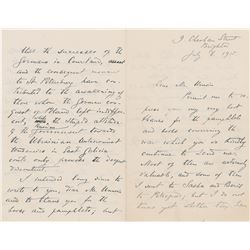 that the successes of the
Germans in Courland, and
the consequent menace
to Petersburg have con-
tributed to the awakening of
those whom the German con-
quest of Poland left indiffer-
ent, the stupid attitude
of the Government towards
the Ukrainian
tendencies in East Galicia
only the deepest
discontent.
I intended long since to
write to you, dear Mr.
and to thank you for the
books and pamphlets, but
Brighton
July 1915
Dear Mr.
Permit me to
you very my best
thanks for the pamphlets
and books concerning the
war which you so kindly
continue to send me.
Most of them are extremely
valuable, and some of them
I sent to Sasha and Boris
to Petrograd, but I do not
know yet whether they have